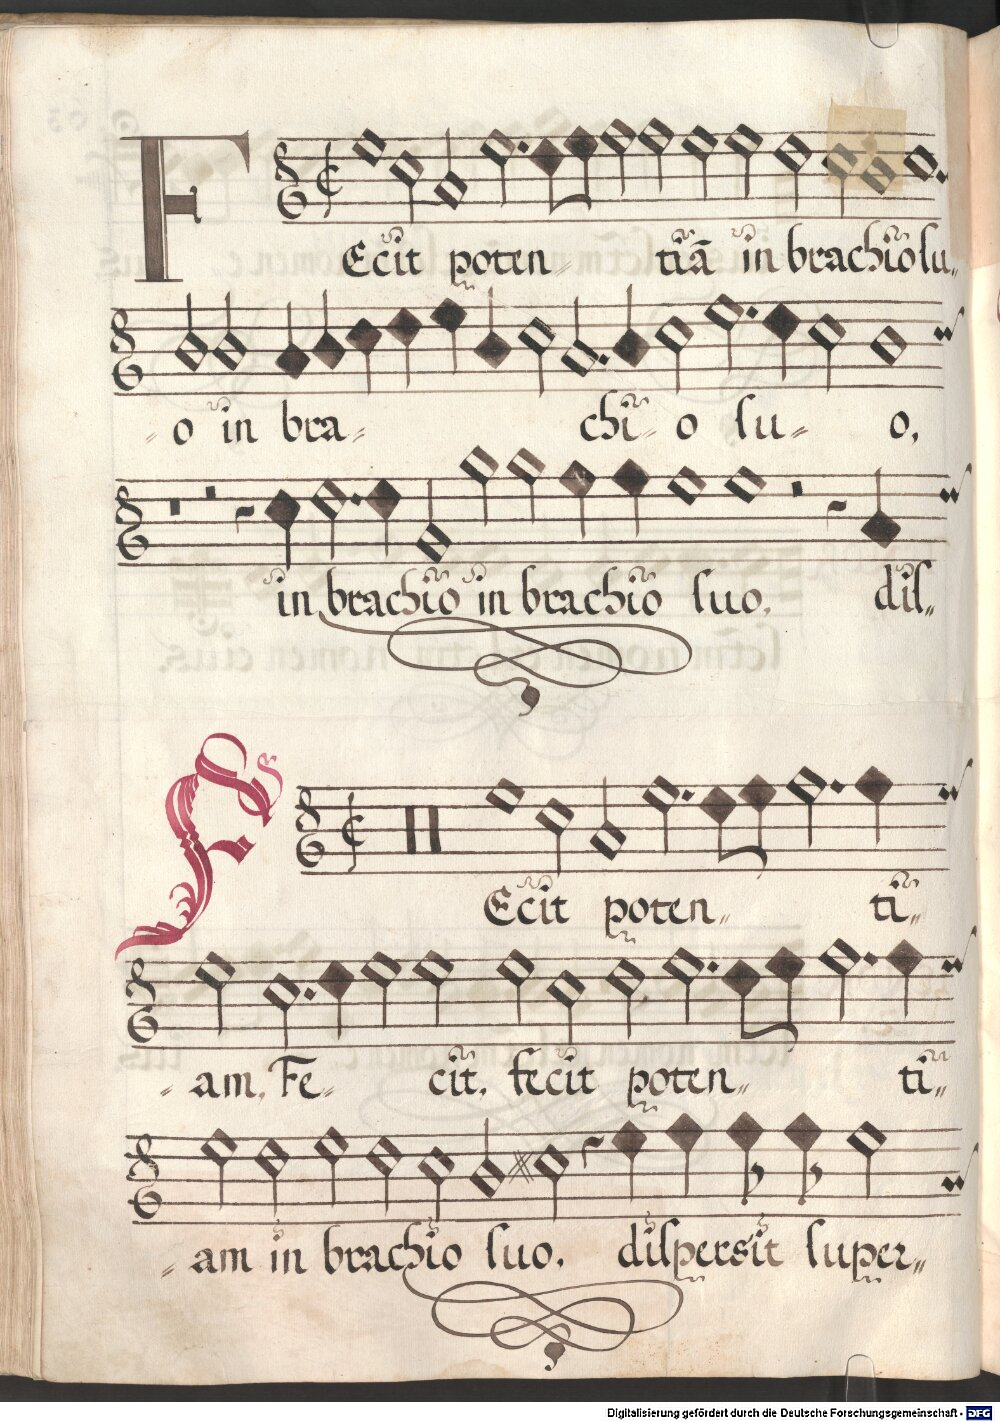 FEcit poten= tiã in brachio su=
= o in bra= chi= o su= o,
in brachio in brachio suo, dis=
FEcit poten= ti=
= am, Fe= cit, fecit poten= ti=
= am in brachio suo, dispersit super=
Digitalisierung gefördert durch die Deutsche Forschungsgemeinschaft - DFG